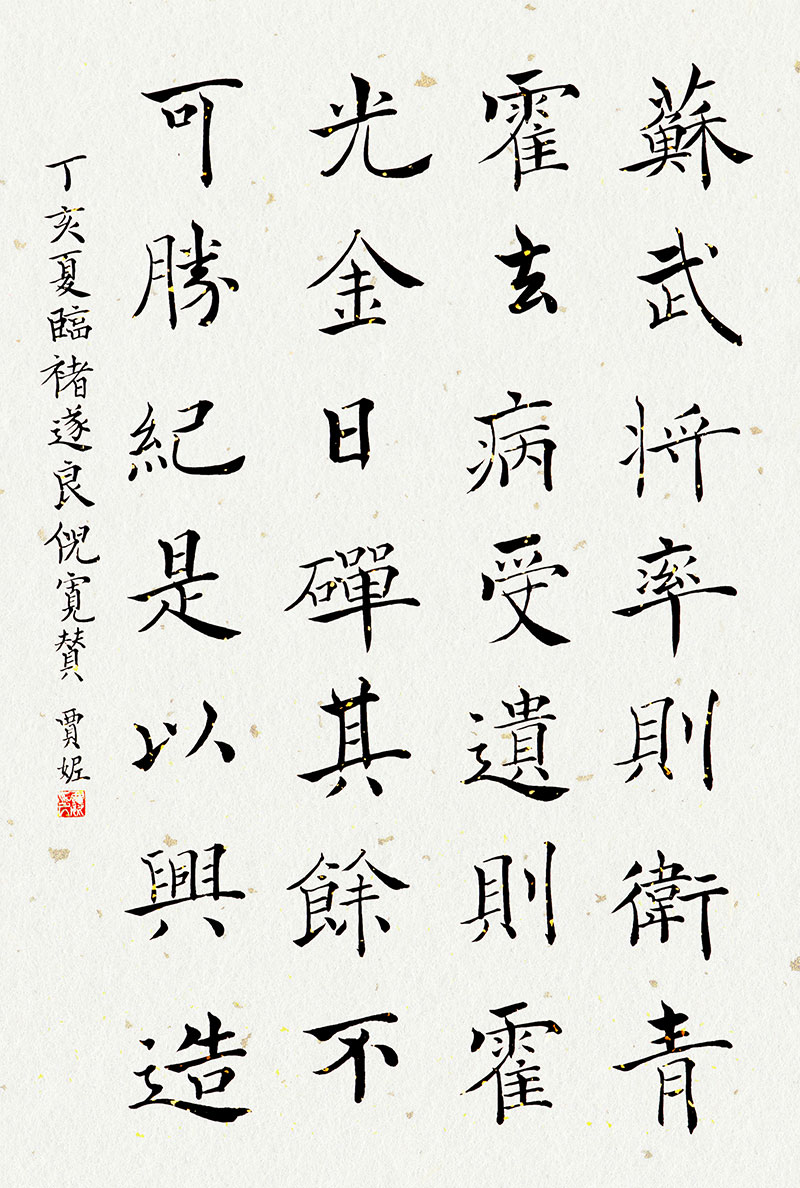 蘇武将率則衛青
霍去病受遺則霍
光金日磾其餘不
可勝紀是以興造
丁亥夏臨褚遂良倪寬赞 賈妮